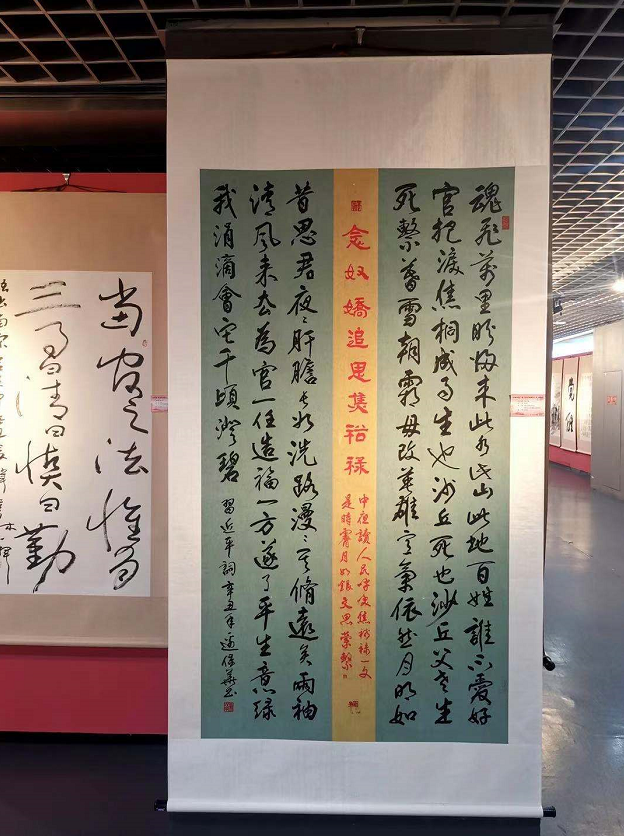 魂飛萬里盼歸來此水此山此地百姓誰不愛好
官把淚焦桐成雨生也沙丘死也沙丘父老生
死繫暮雪朝霜毋改英雄意氣依然月明如
念奴嬌追思焦裕祿
中夜讀人民呼喚焦裕祿一文
是時霽月如銀文思縈繫
昔思君夜〻肝膽長如洗路漫〻其脩遠矣兩袖
清風來去為官一任造福一方遂了平生意綠
我涓滴會它千頃澄碧
習近平詞辛丑年
當官之法惟有
三事曰清曰慎曰勤